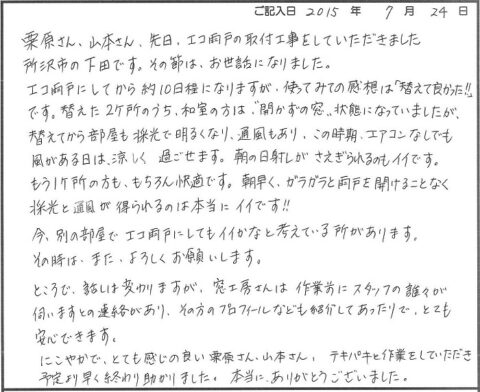 ご記入日 2015 年 7 月 24 日
栗原さん、山本さん、先日、エコ雨戸の取付工事をしていただきました
所沢市の下田です。その節は、お世話になりました。
エコ雨戸にしてから約10日程になりますが、使ってみての感想は「替えて良かった!!」
です。替えた2ケ所のうち、和室の方は、"開かずの窓"状態になっていましたが、
替えてから部屋も採光で明るくなり、通風もあり、この時期、エアコンなしでも
風がある日は、涼しく 過ごせます。朝の日射しが さえぎられるのもイイです。
もう1ケ所の方も、もちろん快適です。朝早く、ガラガラと雨戸を開けることなく
採光と通風が得られるのは本当にイイです!!
今、別の部屋でエコ雨戸にしてもイイかなと考えている所があります。
その時は、また、よろしくお願いします。
ところで、話しは変わりますが、窓工房さんは 作業前にスタッフの誰々が
伺いますとの連絡があり、その方のプロフィールなども紹介してあったりで、とても
安心できます。
にこやかで、とても感じの良い栗原さん、山本さん、テキパキと作業をしていただき
予定より早く終わり助かりました。本当に、ありがとうございました。